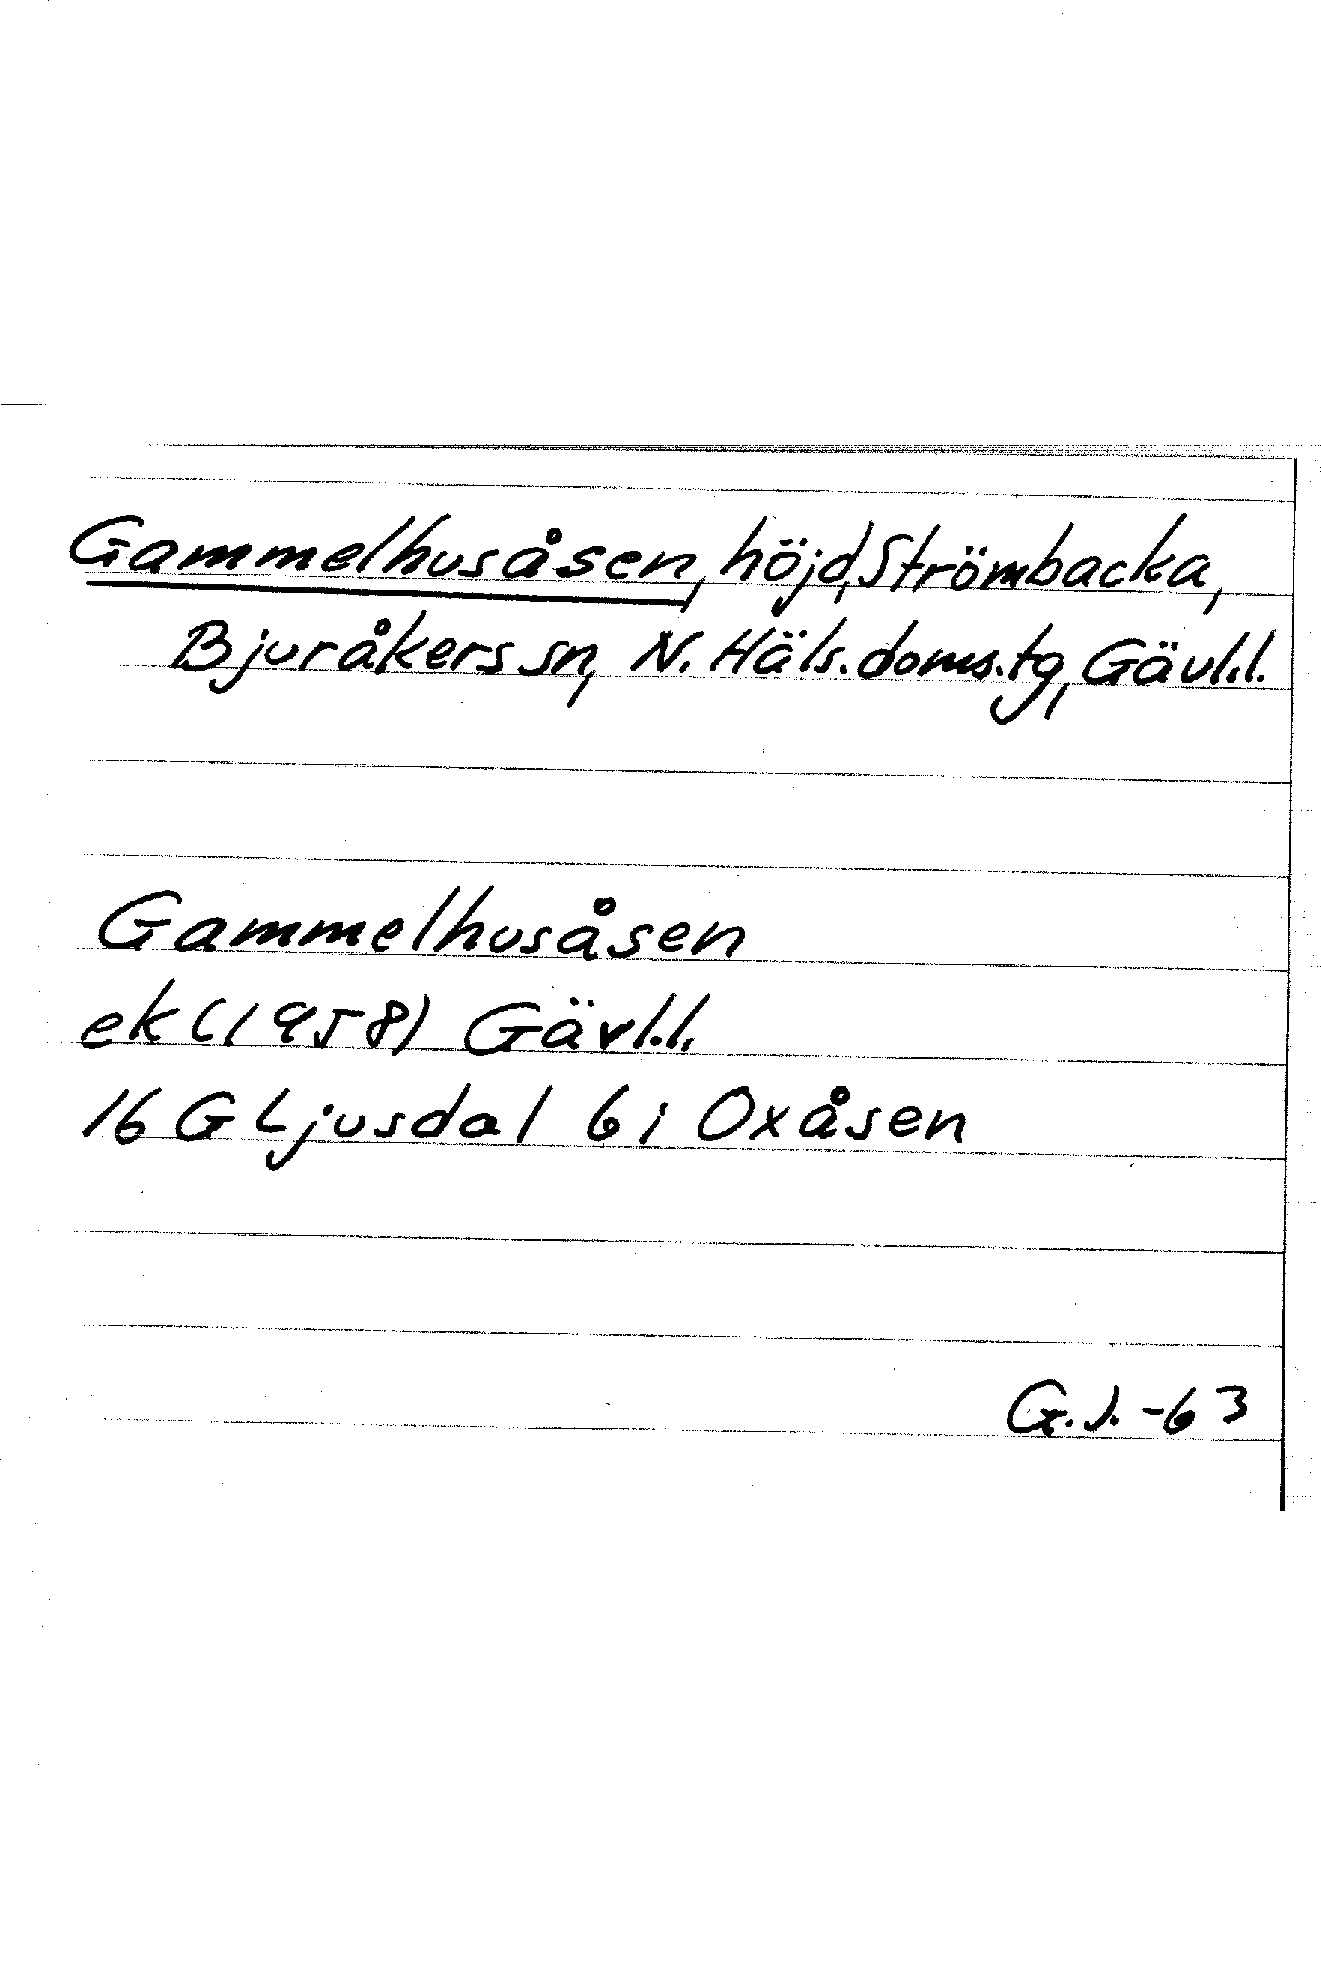 Gammelhusåsen, höjd, Strömbacka,
Bjuråkers sn, N. Häls. doms. tg, Gävl.l.
Gammelhusåsen
ek (1958) Gävl.l.
16 G Ljusdal 6 i Oxåsen
G.J. -63